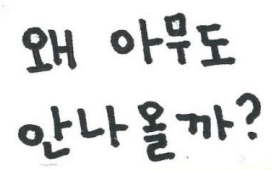 왜 아무도
안나올까?